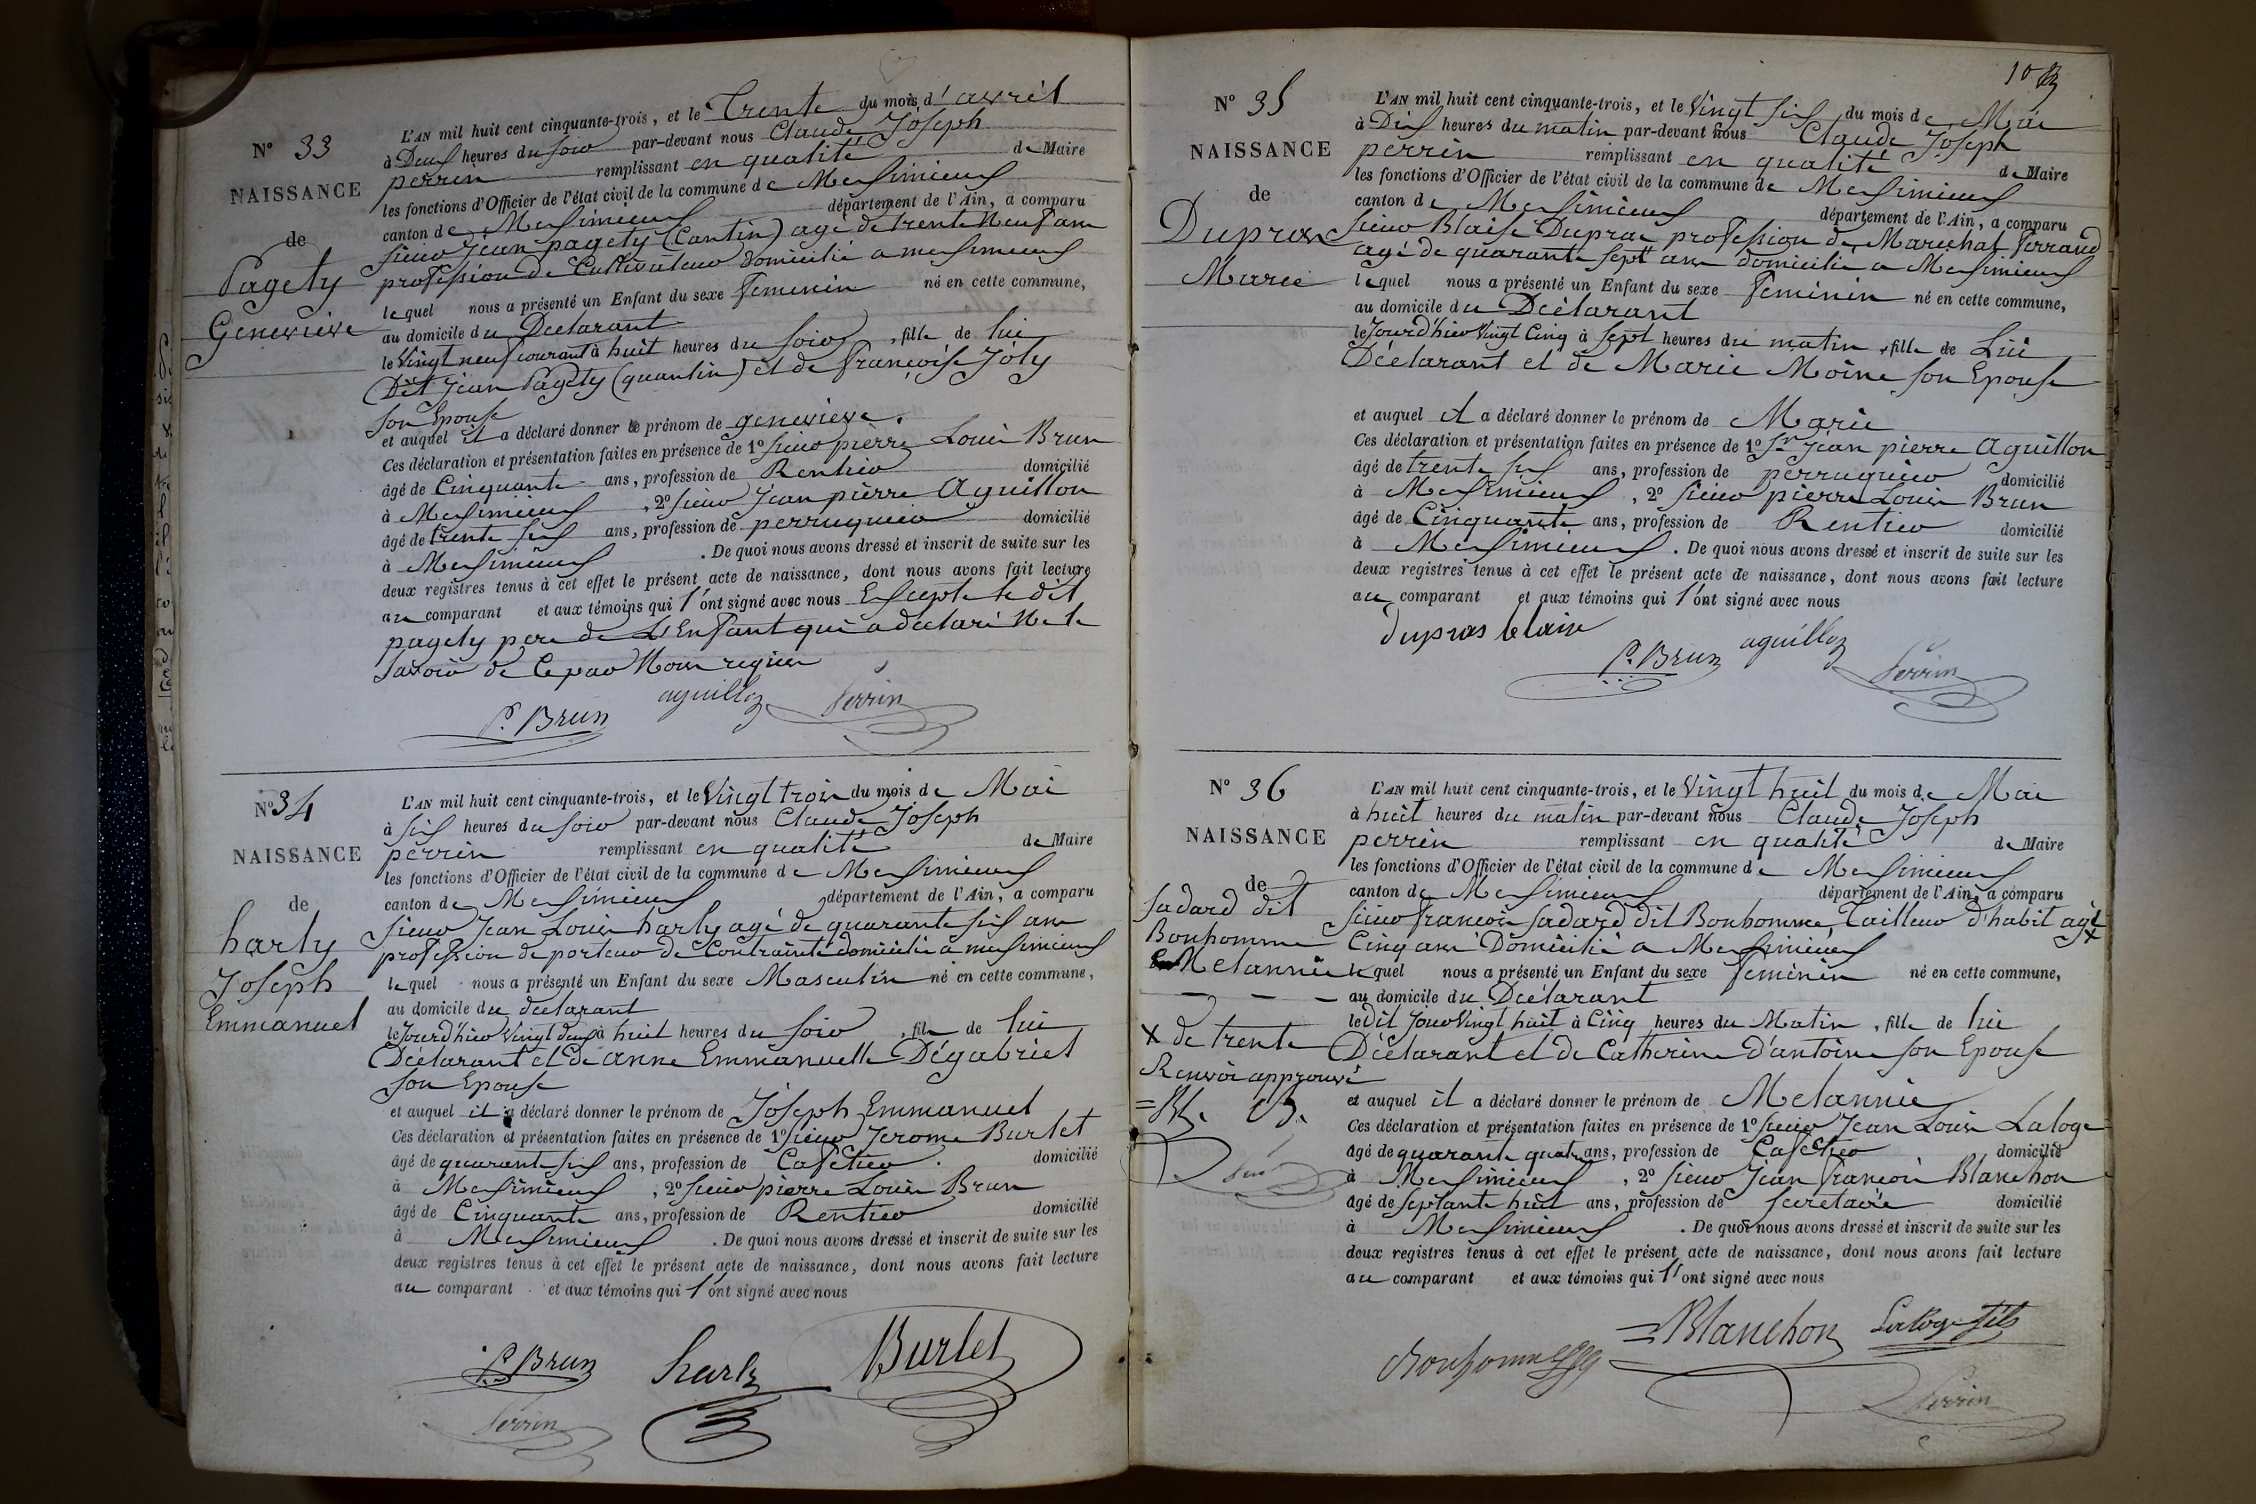 N° 33
NAISSANCE
de
Pagety
Genevieve
L'AN mil huit cent cinquante-trois, et le Trente du mois d'avril
à Deux heures du soir par-devant nous Claude Joseph
perrin remplissant en qualité de Maire
les fonctions d'Officier de l'état civil de la commune de Meximieux
canton de Meximieux département de l'Ain, a comparu
sieur Jean pagety (Cantin) agé de trente Neuf ans
profession de Cultivateur domicilié a meximieux
lequel nous a présenté un Enfant du sexe feminin né en cette commune,
au domicile du Déclarant
le Vingt neuf courant à huit heures du soir, fille de lui
Dit Jean Pagety (quantin) et de françoise Joly
son Epouse
et auquel il a déclaré donner le prénom de genevieve.
Ces déclaration et présentation faites en présence de 1° sieur pierre Louis Brun
âgé de Cinquante ans, profession de Rentier domicilié
à Meximieux, 2° sieur Jean pierre Aguillon
âgé de trente six ans, profession de perruquier domicilié
à Meximieux. De quoi nous avons dressé et inscrit de suite sur les
deux registres tenus à cet effet le présent acte de naissance, dont nous avons fait lecture
au comparant et aux témoins qui l'ont signé avec nous Excepté le dit
pagety pere de L'Enfant qui a déclaré Ne le
savoir de Ce par Nous requis
P. Brun aguillon Perrin
N° 34
NAISSANCE
de
harly
Joseph
Emmanuel
L'AN mil huit cent cinquante-trois, et le Vingt trois du mois de Mai
à six heures du soir par-devant nous Claude Joseph
perrin remplissant en qualité de Maire
les fonctions d'Officier de l'état civil de la commune de Meximieux
canton de Meximieux département de l'Ain, a comparu
sieur Jean Louis harly agé de quarante six ans
profession de porteur de Contrainte domicilié a meximieux
lequel nous a présenté un Enfant du sexe Masculin né en cette commune,
au domicile du déclarant
le Jourd'hier Vingt deux à huit heures du soir, fils de lui
Déclarant et de anne Emmanuelle Dégabriel
son Epouse
et auquel il a déclaré donner le prénom de Joseph Emmanuel
Ces déclaration et présentation faites en présence de 1° sieur Jerome Burlet
âgé de quarante six ans, profession de Cafetier. domicilié
à Meximieux, 2° sieur pierre Louis Brun
âgé de Cinquante ans, profession de Rentier domicilié
à Meximieux. De quoi nous avons dressé et inscrit de suite sur les
deux registres tenus à cet effet le présent acte de naissance, dont nous avons fait lecture
au comparant et aux témoins qui l'ont signé avec nous
P. Brun harly Burlet
Perrin
N° 35
NAISSANCE
de
Dupras
Marie
L'AN mil huit cent cinquante-trois, et le Vingt six du mois de Mai
à Dix heures du matin par-devant nous Claude Joseph
perrin remplissant en qualité de Maire
les fonctions d'Officier de l'état civil de la commune de Meximieux
canton de Meximieux département de l'Ain, a comparu
sieur Blaise Dupras profession de Marechal ferrand
agé de quarante sept ans domicilié a Meximieux
lequel nous a présenté un Enfant du sexe feminin né en cette commune,
au domicile du Déclarant
le Jourd'hier Vingt Cinq à sept heures du matin, fille de Lui
Déclarant et de Marie Moine son Epouse
et auquel il a déclaré donner le prénom de Marie
Ces déclaration et présentation faites en présence de 1° Sr Jean pierre Aguillon
âgé de trente six ans, profession de perruquier domicilié
à Meximieux, 2° sieur pierre Louis Brun
âgé de Cinquante ans, profession de Rentier domicilié
à Meximieux. De quoi nous avons dressé et inscrit de suite sur les
deux registres tenus à cet effet le présent acte de naissance, dont nous avons fait lecture
au comparant et aux témoins qui l'ont signé avec nous
dupras blaise
P. Brun aguillon Perrin
N° 36
NAISSANCE
de
sadard dit
Bonhomme
Melannie
X de trente
Renvoi approuvé
L'AN mil huit cent cinquante-trois, et le Vingt huit du mois de Mai
à huit heures du matin par-devant nous Claude Joseph
perrin remplissant en qualité de Maire
les fonctions d'Officier de l'état civil de la commune de Meximieux
canton de Meximieux département de l'Ain, a comparu
sieur francois sadard dit Bonhomme, Tailleur d'habit agé X
Cinq ans Domicilié a Meximieux
lequel nous a présenté un Enfant du sexe feminin né en cette commune,
au domicile du Déclarant
le Dit Jour Vingt huit à Cinq heures du Matin, fille de lui
Déclarant et de Catherine d'antoine son Epouse
et auquel il a déclaré donner le prénom de Melannie
Ces déclaration et présentation faites en présence de 1° sieur Jean Louis Laloge
âgé de quarante quatre ans, profession de Cafetier domicilié
à Meximieux, 2° sieur Jean francois Blanchon
âgé de septante huit ans, profession de secretaire domicilié
à Meximieux. De quoi nous avons dressé et inscrit de suite sur les
deux registres tenus à cet effet le présent acte de naissance, dont nous avons fait lecture
au comparant et aux témoins qui l'ont signé avec nous
Bonhomme Blanchon Laloge fils
Perrin